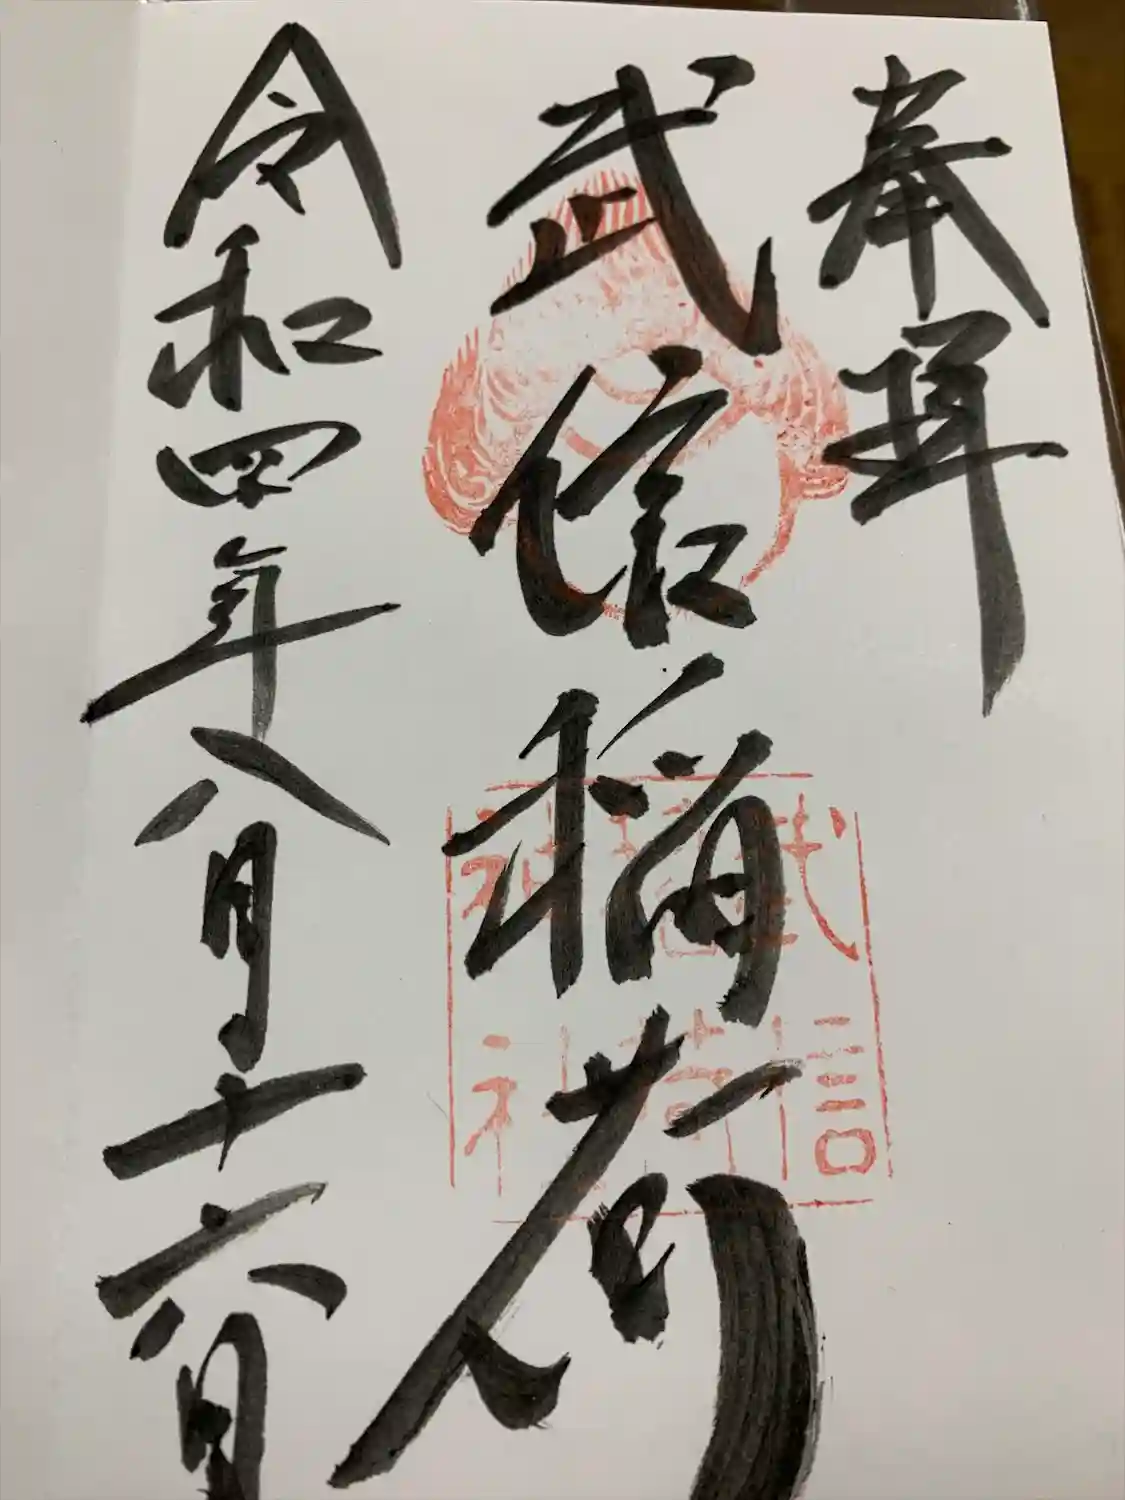 奉拝
武信稲荷
武信
稲荷
神社
令和四年八月十六日